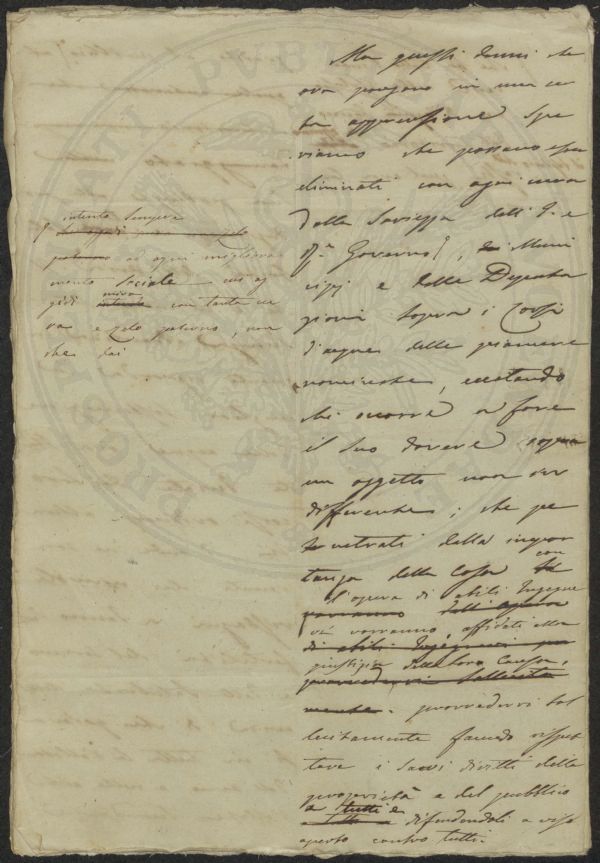 Ma questi danni che
ora pongono in una cer
ta apprensione spe
riamo che possano esser
eliminati con ogni cura
dalla Saviezza dell' I. e
R. Governo, dai Muni
cipj e dalle Deputa
zioni sopra i Corsi
d'acque delle pianure
nominate, eccitando
chi occorre a fare
il suo dovere sopra
un oggetto non in
differente; che pe
netrati della impor
tanza della Cosa
con
l'opera di abili Ingegne
ri vorranno, affidati alla
giustizia della loro Causa,
provvedervi sol
lecitamente facendo rispet
tare i sacri diritti della
proprietà e del pubblico
a tutti e
difendendoli a viso
aperto contro tutti.
intento sempre
ad ogni migliora
mento sociale
mira
con tanta cu
ra e zelo paterno, non
che dai
PVBLI